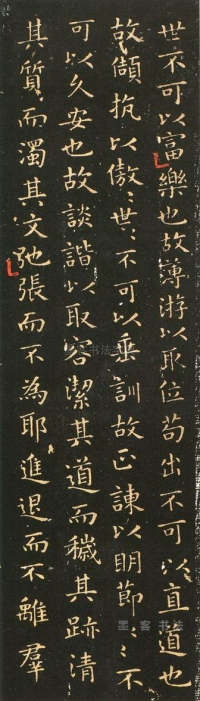 世不可以富樂也故薄游以取位苟出不可以直道也
故傾抗以傲〻世〻不可以垂訓故正諫以明節〻〻不
可以久安也故談諧以取容潔其道而穢其跡清
其質而濁其文弛張而不為耶進退而不離羣
墨客书法